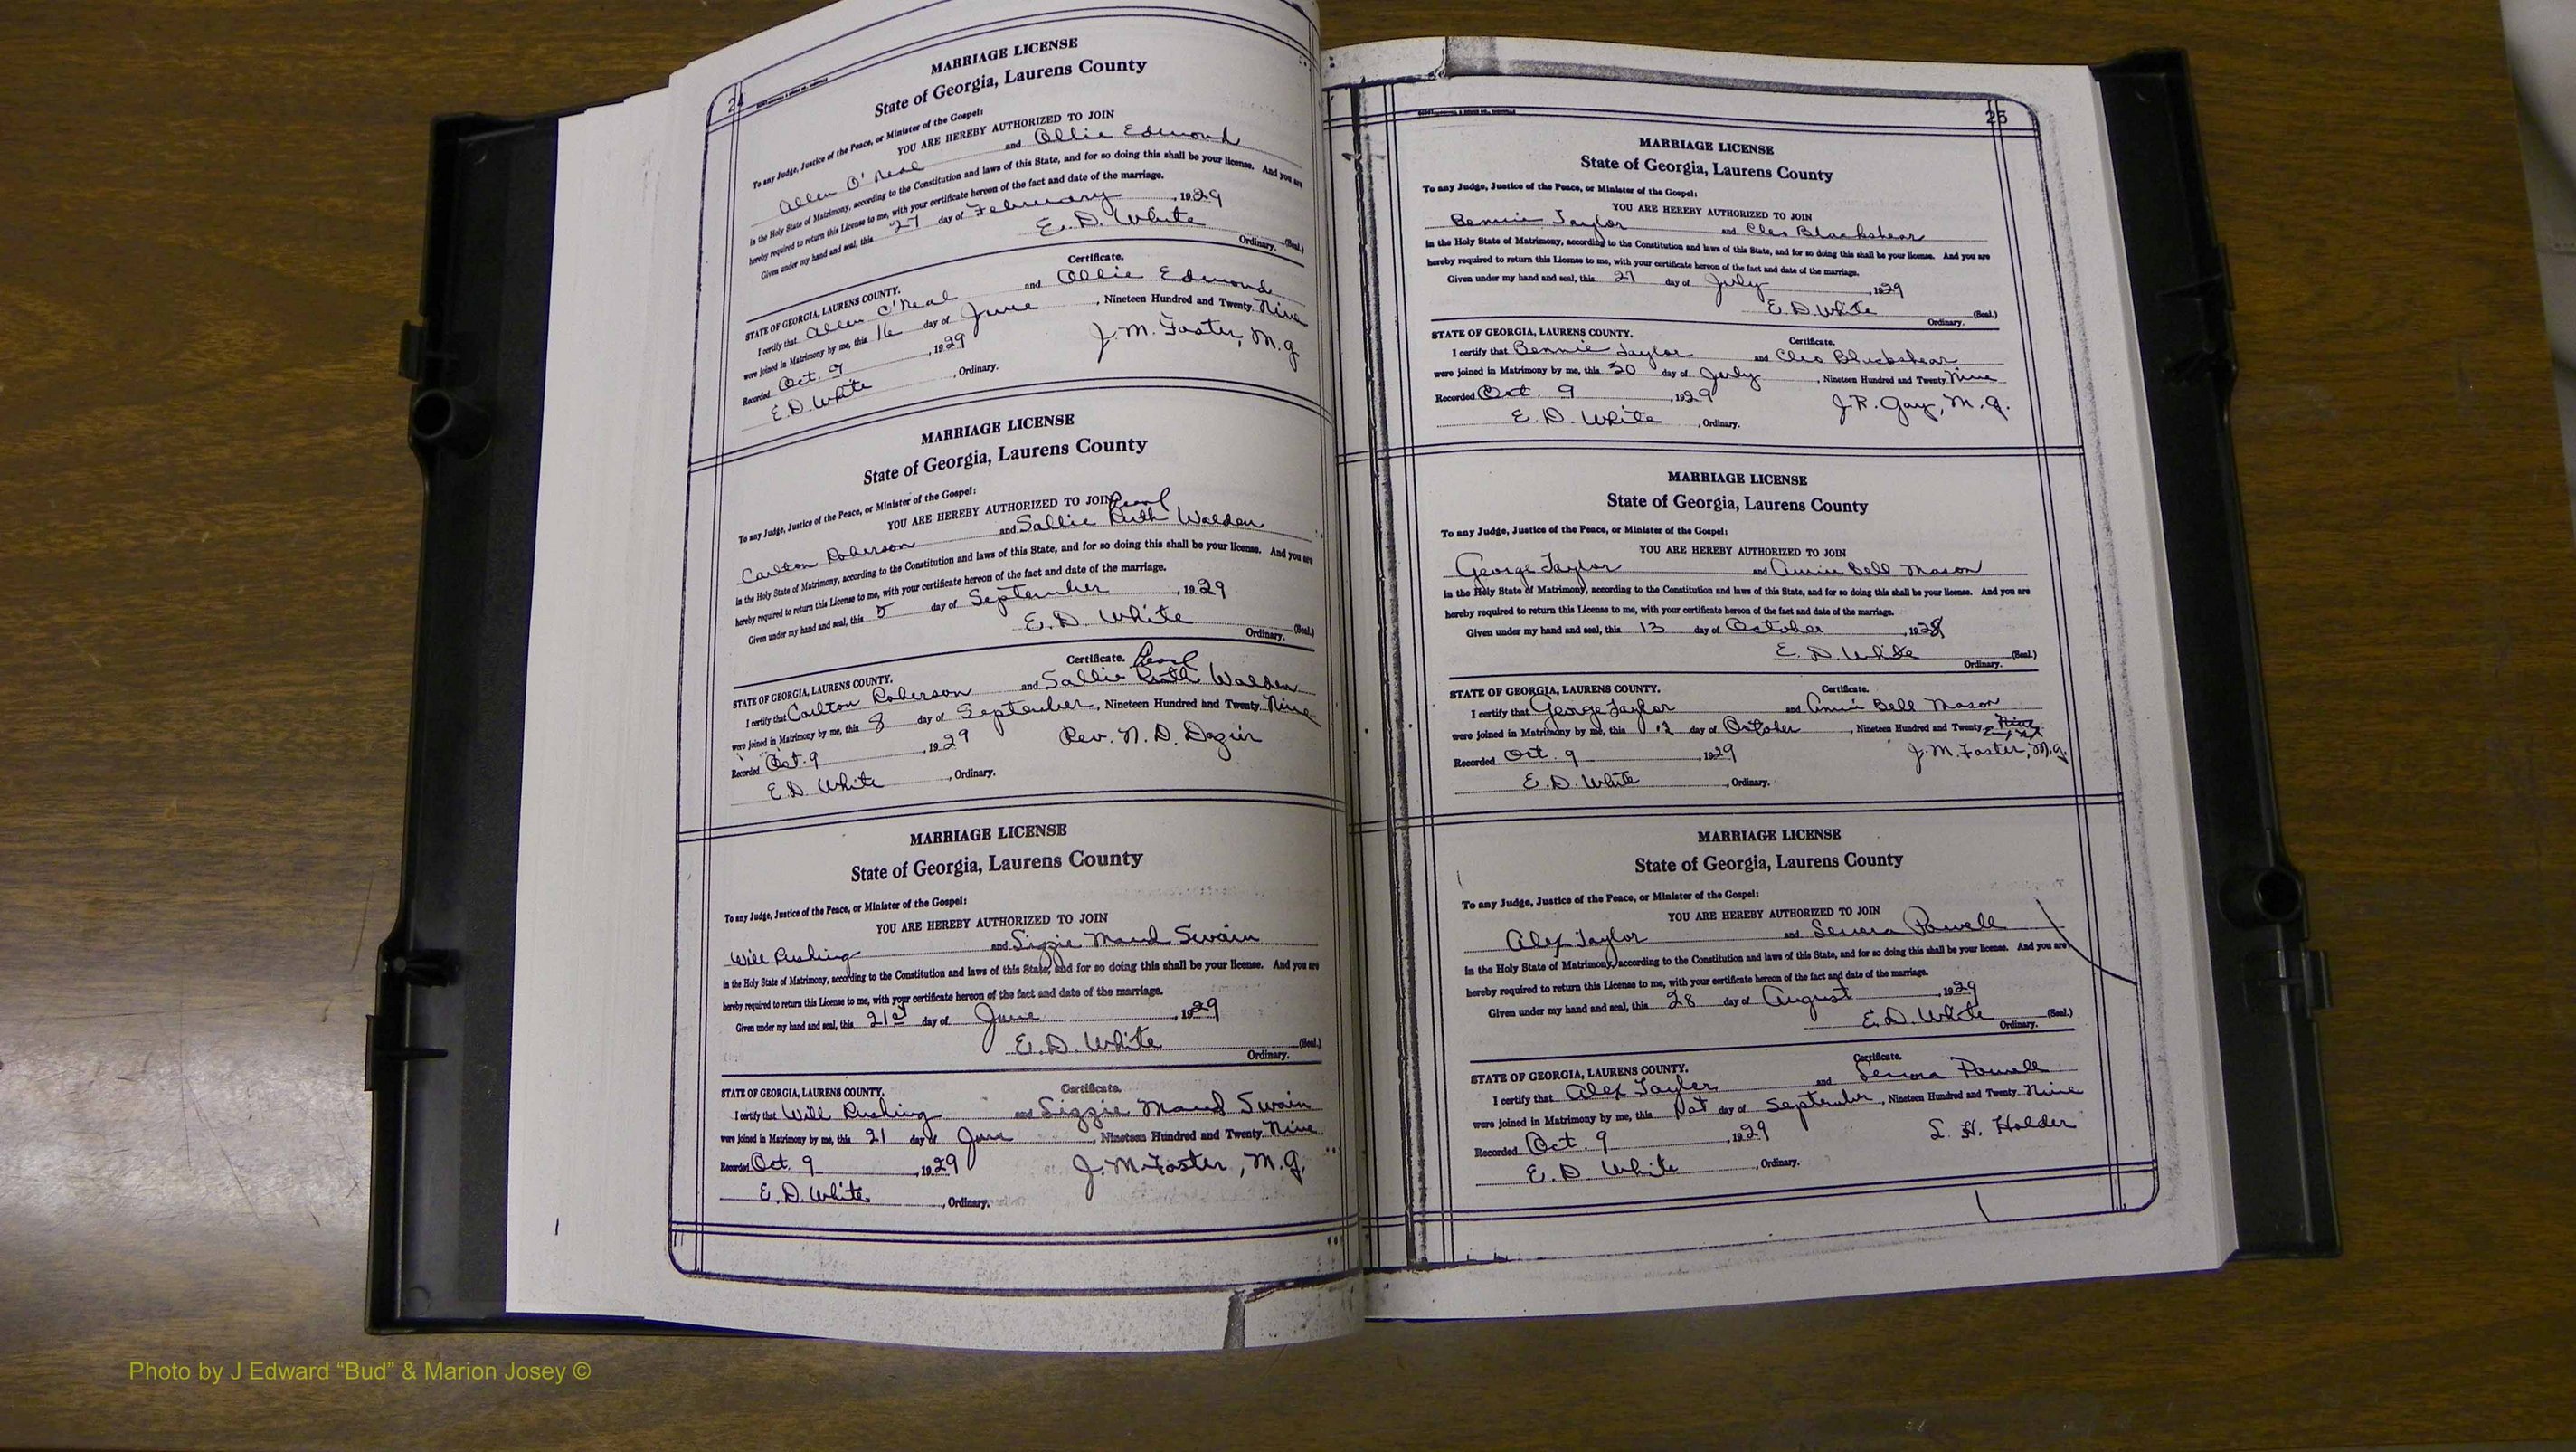 24
MARRIAGE LICENSE
State of Georgia, Laurens County
To any Judge, Justice of the Peace, or Minister of the Gospel:
YOU ARE HEREBY AUTHORIZED TO JOIN
Allen O'Neal and Ollie Edmond
in the Holy State of Matrimony, according to the Constitution and laws of this State, and for so doing this shall be your license. And you are
hereby required to return this License to me, with your certificate hereon of the fact and date of the marriage.
Given under my hand and seal, this 27 day of February, 1929
E. D. White (Seal.)
Ordinary.
Certificate.
STATE OF GEORGIA, LAURENS COUNTY.
I certify that Allen O'Neal and Ollie Edmond
were joined in Matrimony by me, this 16 day of June, Nineteen Hundred and Twenty Nine
Recorded Oct. 9, 1929 J. M. Foster, M.G.
E. D. White, Ordinary.
MARRIAGE LICENSE
State of Georgia, Laurens County
To any Judge, Justice of the Peace, or Minister of the Gospel:
YOU ARE HEREBY AUTHORIZED TO JOIN Pearl
Carlton Roberson and Sallie Ruth Walden
in the Holy State of Matrimony, according to the Constitution and laws of this State, and for so doing this shall be your license. And you are
hereby required to return this License to me, with your certificate hereon of the fact and date of the marriage.
Given under my hand and seal, this 5 day of September, 1929
E. D. White (Seal.)
Ordinary.
Certificate. Pearl
STATE OF GEORGIA, LAURENS COUNTY.
I certify that Carlton Roberson and Sallie Ruth Walden
were joined in Matrimony by me, this 8 day of September, Nineteen Hundred and Twenty Nine
Recorded Oct. 9, 1929 Rev. N. D. Dozier
E. D. White, Ordinary.
MARRIAGE LICENSE
State of Georgia, Laurens County
To any Judge, Justice of the Peace, or Minister of the Gospel:
YOU ARE HEREBY AUTHORIZED TO JOIN
Will Rushing and Lizzie Maud Swain
in the Holy State of Matrimony, according to the Constitution and laws of this State, and for so doing this shall be your license. And you are
hereby required to return this License to me, with your certificate hereon of the fact and date of the marriage.
Given under my hand and seal, this 21st day of June, 1929
E. D. White (Seal.)
Ordinary.
Certificate.
STATE OF GEORGIA, LAURENS COUNTY.
I certify that Will Rushing and Lizzie Maud Swain
were joined in Matrimony by me, this 21 day of June, Nineteen Hundred and Twenty Nine
Recorded Oct. 9, 1929 J. M. Foster, M.G.
E. D. White, Ordinary.
25
MARRIAGE LICENSE
State of Georgia, Laurens County
To any Judge, Justice of the Peace, or Minister of the Gospel:
YOU ARE HEREBY AUTHORIZED TO JOIN
Bennie Taylor and Cleo Blackshear
in the Holy State of Matrimony, according to the Constitution and laws of this State, and for so doing this shall be your license. And you are
hereby required to return this License to me, with your certificate hereon of the fact and date of the marriage.
Given under my hand and seal, this 27 day of July, 1929
E. D. White (Seal.)
Ordinary.
Certificate.
STATE OF GEORGIA, LAURENS COUNTY.
I certify that Bennie Taylor and Cleo Blackshear
were joined in Matrimony by me, this 30 day of July, Nineteen Hundred and Twenty Nine
Recorded Oct. 9, 1929 J. R. Gay, M.G.
E. D. White, Ordinary.
MARRIAGE LICENSE
State of Georgia, Laurens County
To any Judge, Justice of the Peace, or Minister of the Gospel:
YOU ARE HEREBY AUTHORIZED TO JOIN
George Taylor and Annie Bell Mason
in the Holy State of Matrimony, according to the Constitution and laws of this State, and for so doing this shall be your license. And you are
hereby required to return this License to me, with your certificate hereon of the fact and date of the marriage.
Given under my hand and seal, this 13 day of October, 1928
E. D. White (Seal.)
Ordinary.
Certificate.
STATE OF GEORGIA, LAURENS COUNTY.
I certify that George Taylor and Annie Bell Mason
were joined in Matrimony by me, this 13 day of October, Nineteen Hundred and Twenty Nine
Recorded Oct. 9, 1929 J. M. Foster, M.G.
E. D. White, Ordinary.
MARRIAGE LICENSE
State of Georgia, Laurens County
To any Judge, Justice of the Peace, or Minister of the Gospel:
YOU ARE HEREBY AUTHORIZED TO JOIN
Alex Taylor and Senora Powell
in the Holy State of Matrimony, according to the Constitution and laws of this State, and for so doing this shall be your license. And you are
hereby required to return this License to me, with your certificate hereon of the fact and date of the marriage.
Given under my hand and seal, this 28 day of August, 1929
E. D. White (Seal.)
Ordinary.
Certificate.
STATE OF GEORGIA, LAURENS COUNTY.
I certify that Alex Taylor and Senora Powell
were joined in Matrimony by me, this 1st day of September, Nineteen Hundred and Twenty Nine
Recorded Oct. 9, 1929 L. H. Holder
E. D. White, Ordinary.
Photo by J Edward “Bud” & Marion Josey ©